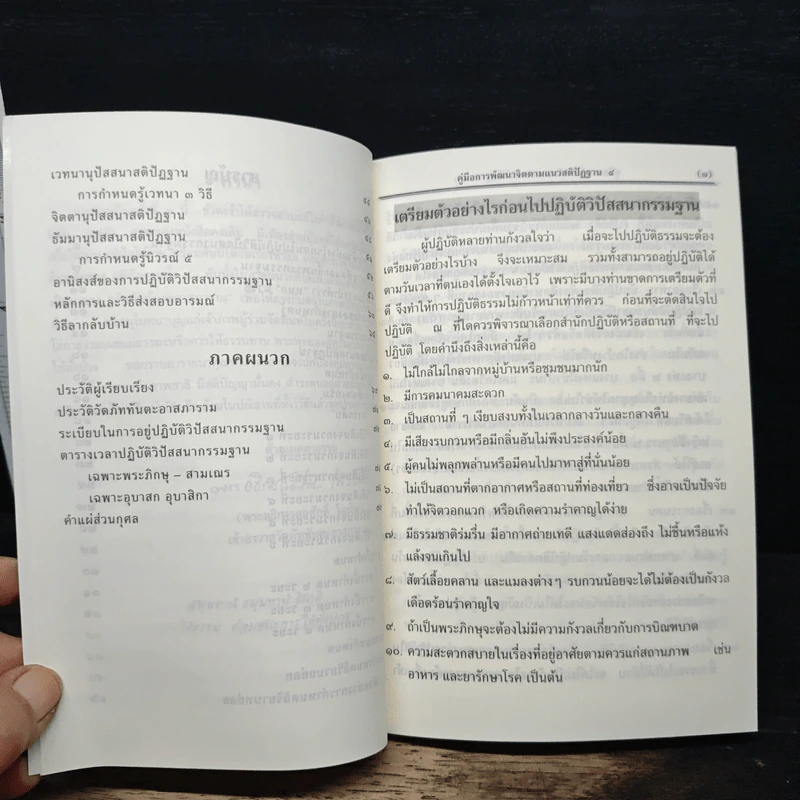 เวทนานุปัสสนาสติปัฏฐาน
การกำหนดรู้เวทนา ๓ วิธี
จิตตานุปัสสนาสติปัฏฐาน
ธัมมานุปัสสนาสติปัฏฐาน
การกำหนดรู้นิวรณ์ ๕
อานิสงส์ของการปฏิบัติวิปัสสนากรรมฐาน
หลักการและวิธีส่งสอบอารมณ์
วิธีลากลับบ้าน
ภาคผนวก
ประวัติผู้เรียบเรียง
ประวัติวัดภัททันตะอาสภาราม
ระเบียบในการอยู่ปฏิบัติวิปัสสนากรรมฐาน
ตารางเวลาปฏิบัติวิปัสสนากรรมฐาน
เฉพาะพระภิกษุ – สามเณร
เฉพาะอุบาสก อุบาสิกา
คำแผ่ส่วนกุศล
คู่มือการพัฒนาจิตตามแนวสติปัฏฐาน ๔ (๑)
เตรียมตัวอย่างไรก่อนไปปฏิบัติวิปัสสนากรรมฐาน
ผู้ปฏิบัติหลายท่านกังวลใจว่า เมื่อจะไปปฏิบัติธรรมจะต้อง
เตรียมตัวอย่างไรบ้าง จึงจะเหมาะสม รวมทั้งสามารถอยู่ปฏิบัติได้
ตามวันเวลาที่ตนเองได้ตั้งใจเอาไว้ เพราะมีบางท่านขาดการเตรียมตัวที่
ดี จึงทำให้การปฏิบัติธรรมไม่ก้าวหน้าเท่าที่ควร ก่อนที่จะตัดสินใจไป
ปฏิบัติ ณ ที่ใดควรพิจารณาเลือกสำนักปฏิบัติหรือสถานที่ ที่จะไป
ปฏิบัติ โดยคำนึงถึงสิ่งเหล่านี้คือ
๑. ไม่ใกล้ไม่ไกลจากหมู่บ้านหรือชุมชนมากนัก
๒. มีการคมนาคมสะดวก
๓. เป็นสถานที่ ๆ เงียบสงบทั้งในเวลากลางวันและกลางคืน
๔. มีเสียงรบกวนหรือมีกลิ่นอันไม่พึงประสงค์น้อย
๕. ผู้คนไม่พลุกพล่านหรือมีคนไปมาหาสู่ที่นั่นน้อย
๖. ไม่เป็นสถานที่ตากอากาศหรือสถานที่ท่องเที่ยว ซึ่งอาจเป็นปัจจัย
ทำให้จิตวอกแวก หรือเกิดความรำคาญได้ง่าย
๗. มีธรรมชาติร่มรื่น มีอากาศถ่ายเทดี แสงแดดส่องถึง ไม่ชื้นหรือแห้ง
แล้งจนเกินไป
๘. สัตว์เลื้อยคลาน และแมลงต่างๆ รบกวนน้อยจะได้ไม่ต้องเป็นกังวล
เดือดร้อนรำคาญใจ
๙. ถ้าเป็นพระภิกษุจะต้องไม่มีความกังวลเกี่ยวกับการบิณฑบาต
๑๐. ความสะดวกสบายในเรื่องที่อยู่อาศัยตามควรแก่สถานภาพ เช่น
อาหาร และยารักษาโรค เป็นต้น